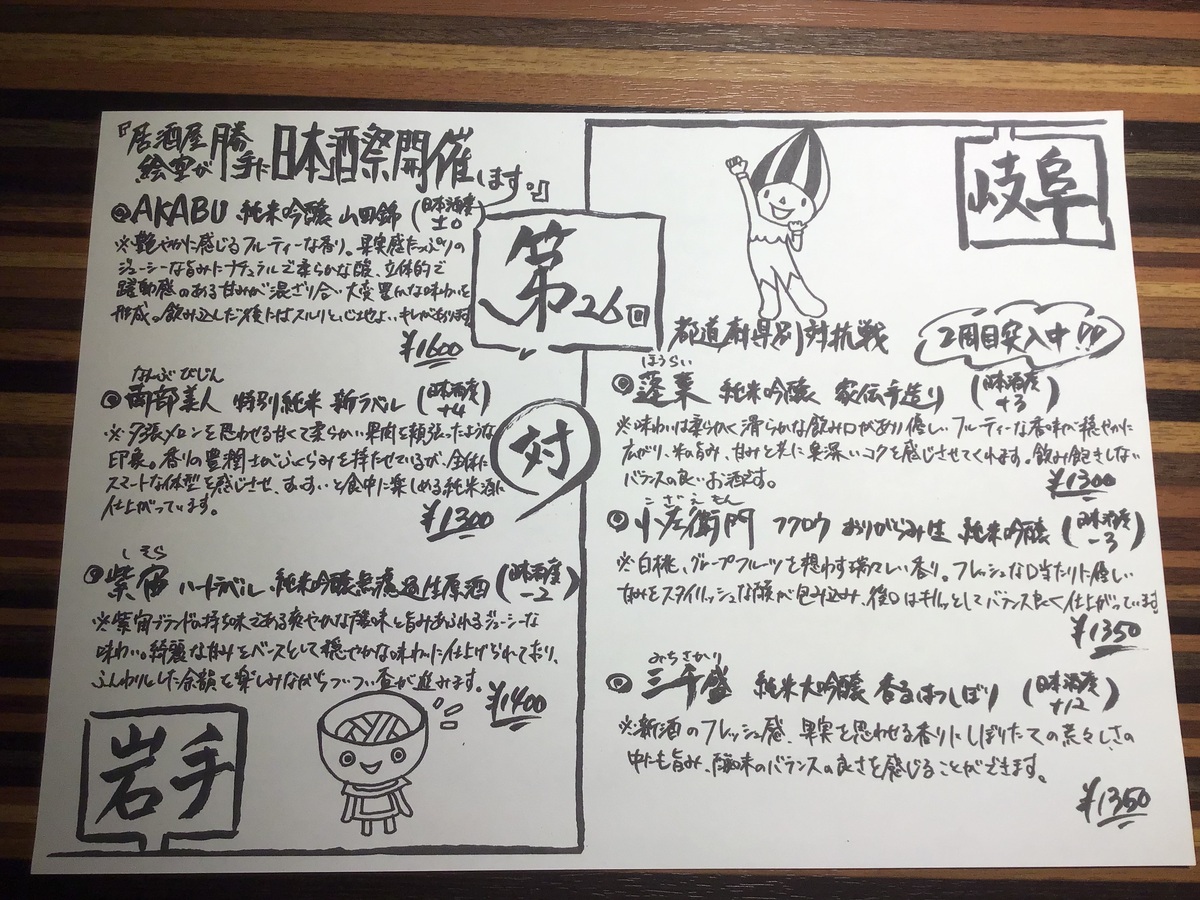 『居酒屋
絵空が
勝手に
日本酒祭開催
します。』
第26回
AKABU 純米吟醸 山田錦 (日本酒度 ±0)
※艶やかに感じるフルーティーな香り。果実感たっぷりの
ジューシーな旨みにナチュラルで柔らかな酸、立体的で
躍動感のある甘みが混ざり合い大変豊かな味わいを
形成。飲み込んだ後にはスルリと心地よいキレがあります
¥1600
なんぶびじん
南部美人 特別純米 新ラベル (日本酒度 +4)
※夕張メロンを思わせる甘くて柔らかい果肉を頬張ったような
印象。香りの豊潤さがふくらみを持たせているが、全体に
スマートな体型を感じさせ、すいすいと食中に楽しめる純米酒に
仕上がっています。
¥1300
しそら
紫宙 ハートラベル 純米吟醸無濾過生原酒 (日本酒度 -2)
※紫宙ブランドの持ち味である爽やかな酸味と旨みあふれるジューシーな
味わい。綺麗な甘みをベースとして穏やかな味わいに仕上げられており、
ふんわりとした余韻を楽しみながらついつい杯が進みます。
¥1400
岩手
対
岐阜
都道府県別対抗戦
2周目突入中!!
ほうらい
蓬莱 純米吟醸 家伝手造り (日本酒度 +3)
※味わいは柔らかく滑らかな飲み口があり優しいフルーティーな香味が穏やかに
広がり、米の旨み、甘みと共に奥深いコクを感じさせてくれます。飲み飽きしない
バランスの良いお酒です。
¥1300
こざえもん
小左衛門 フクロウ おりがらみ生 純米吟醸 (日本酒度 -3)
※白桃、グレープフルーツを想わす瑞々しい香り。フレッシュな口当たりに優しい
甘みをスタイリッシュな酸が包み込み、後口はキリッとしてバランス良く仕上がっています
¥1350
みちさかり
三千盛 純米大吟醸 香るはつしぼり (日本酒度 +12)
※新酒のフレッシュ感、果実を思わせる香りにしぼりたての荒々しさの
中にも旨み、酸味のバランスの良さを感じることができます。
¥1350